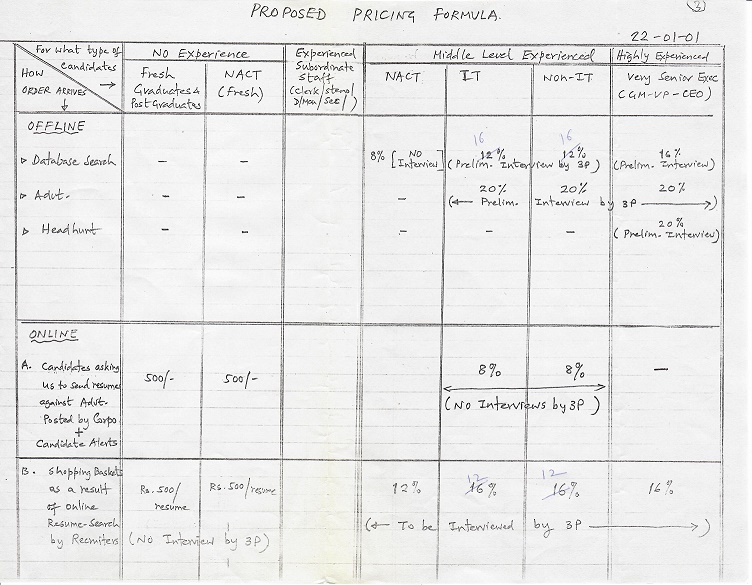 PROPOSED PRICING FORMULA.
(3)
22-01-01
For what type of candidates →
HOW ORDER ARRIVES ↓
No Experience
Fresh Graduates & Post Graduates
NACT (fresh)
Experienced Subordinate Staff
(Clerk/steno/
D/Man/Sec/ )
Middle Level Experienced
NACT IT NON-IT
Highly Experienced
Very Senior Exec
(GM-VP-CEO)
OFFLINE
16 16
▷ Database Search - - 8% [No Interview] 12% 12% 16%
(Prelim. Interview by 3P) (Prelim. Interview)
▷ Advt. - - - 20% 20% 20%
(← Prelim. Interview by 3P →)
▷ Headhunt - - - - - 20%
(Prelim. Interview)
ONLINE
A. Candidates asking
us to send resumes
against Advt.
Posted by Corpo
+
Candidate Alerts
500/- 500/- 8% 8% -
(No Interviews by 3P)
B. Shopping Baskets
as a result
of online
Resume-Search
by Recruiters
Rs. 500/resume Rs. 500/resume
(No Interview by 3P)
12 12
12% 16% 16% 16%
(← To be Interviewed by 3P →)